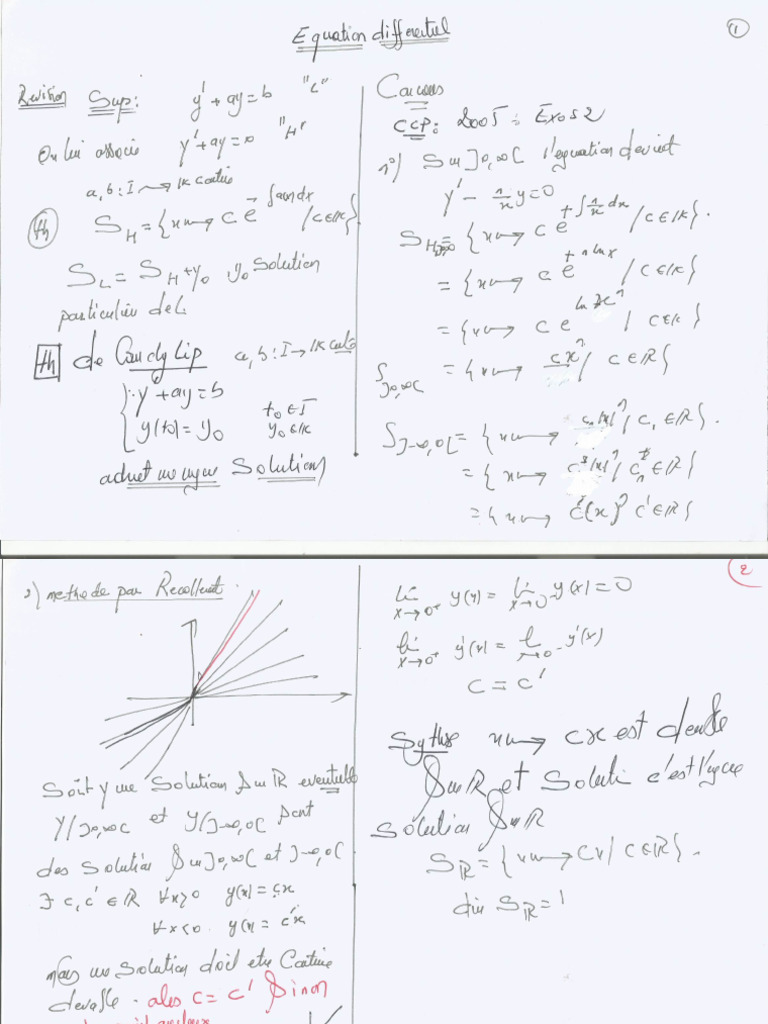 Equation differentiel
1
Revision Sup: y' + ay = b "L"
On lui associe y' + ay = 0 "H"
a, b : I → IK continue
th S_H = {x ↦ C e^{-∫a(x)dx} / C ∈ IK}
S_L = S_H + y_0 y_0 solution
particulière de L
th de Cauchy Lip a, b : I → IK
y' + ay = b
y(t_0) = y_0 t_0 ∈ I y_0 ∈ IK
admet une unique Solution
Concours
CCP: 2005 : Exos 2
1°) Sur ]0,∞[ l'equation devient
y' - n/x y = 0
= {x ↦ C e^{+∫ n/x dx} / C ∈ IK}.
= {x ↦ C e^{+ n ln x} / C ∈ IK}
= {x ↦ C e^{ln x^n} / C ∈ IK}
S_{]0,∞[} = {x ↦ C x^n / C ∈ IR}
S_{]-∞,0[} = {x ↦ C_1 |x|^n / C_1 ∈ IR}.
= {x ↦ |x|^n / ∈ IR}
= {x ↦ C'(x)^n C' ∈ IR}
2) methode par Recollement.
Soit y une Solution Sur IR eventuelle
y/]0,∞[ et y/]-∞,0[ sont
des solution Sur ]0,∞[ et ]-∞,0[
∃ c, c' ∈ IR ∀x>0 y(x) = cx
∀x<0 y(x) = c'x
mais une solution doit etre Continue
derivable. alors c = c' Sinon
2
lim_{x→0+} y(x) = lim_{x→0-} y(x) = 0
lim_{x→0+} y'(x) = lim_{x→0-} y'(x)
c = c'
x ↦ cx est derivable
Sur IR et solution c'est l'unique
solution Sur IR
S_IR = {x ↦ Cx / C ∈ IR}.
dim S_IR = 1